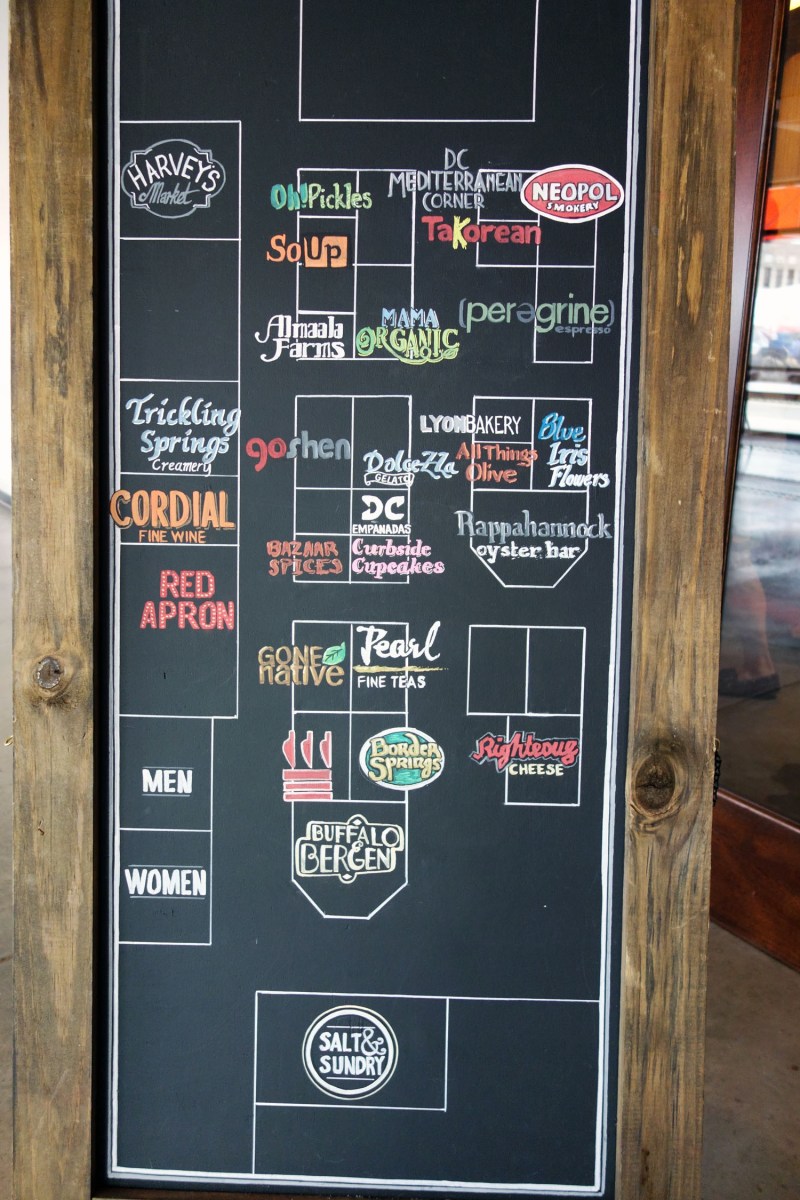 HARVEY'S
Market
Oh! Pickles
DC
MEDITERRANEAN
CORNER
NEOPOL
SMOKERY
TaKorean
SoUp
Almaala
Farms
MAMA
ORGANIC
(peregrine)
espresso
Trickling
Springs
Creamery
goshen
Dolcezza
GELATO
LYON BAKERY
All Things
Olive
Blue
Iris
Flowers
CORDIAL
FINE WINE
DC
EMPANADAS
Rappahannock
oyster bar
BAZAAR
SPICES
Curbside
Cupcakes
RED
APRON
GONE
native
Pearl
FINE TEAS
Border
Springs
Righteous
CHEESE
MEN
BUFFALO
&
BERGEN
WOMEN
SALT &
SUNDRY